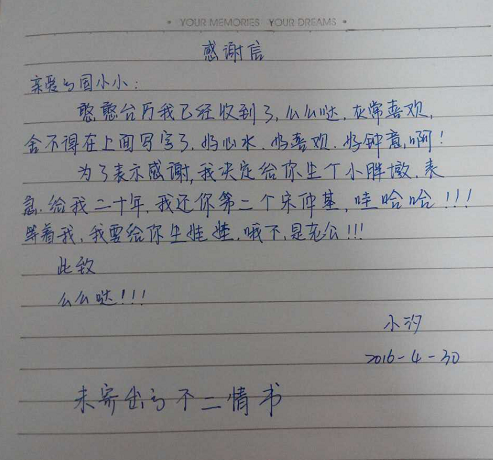 YOUR MEMORIES YOUR DREAMS
感谢信
亲爱的国小小：
憨憨台历我已经收到了，么么哒，灰常喜欢，
舍不得在上面写字了，好心水，好喜欢，好钟意，啊！
为了表示感谢，我决定给你生个小胖墩，表
急，给我二十年，我还你第二个宋仲基，哇哈哈！！！
等着我，我要给你生娃娃，哦不，是老公！！！
此致
么么哒！！！
小汐
2016-4-30
未寄出的不二情书